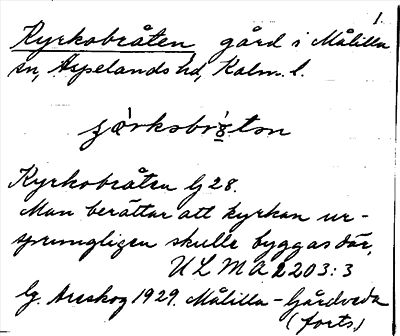 1.
Kyrkobråten gård i Målilla
sn, Aspelands hd, Kalm. l.
Kyrkobråten G 28.
Man berättar att kyrkan ur-
sprungligen skulle byggas där,
ULMA 2203:3
G. Areskog 1929. Målilla-Gårdveda
(forts)